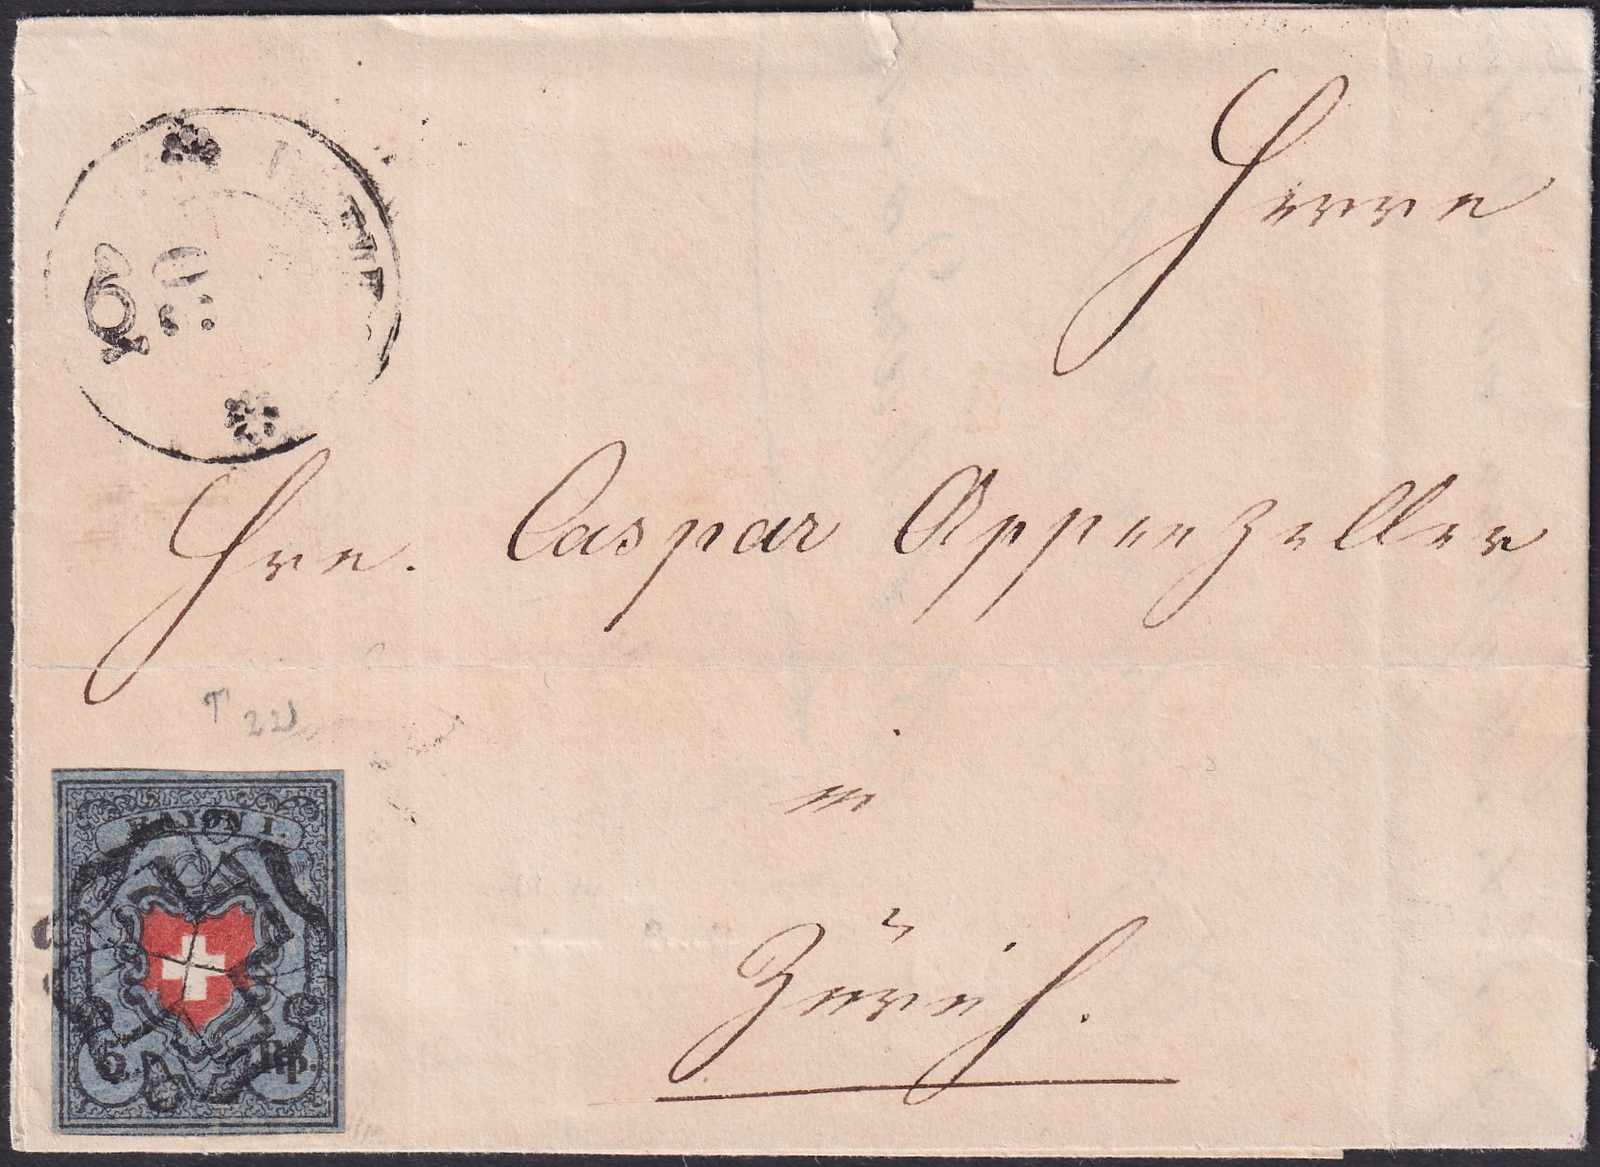 Herrn
Hrn. Caspar Appenzeller
in
Zürich.
T 22
RAYON I.
5. Rp.